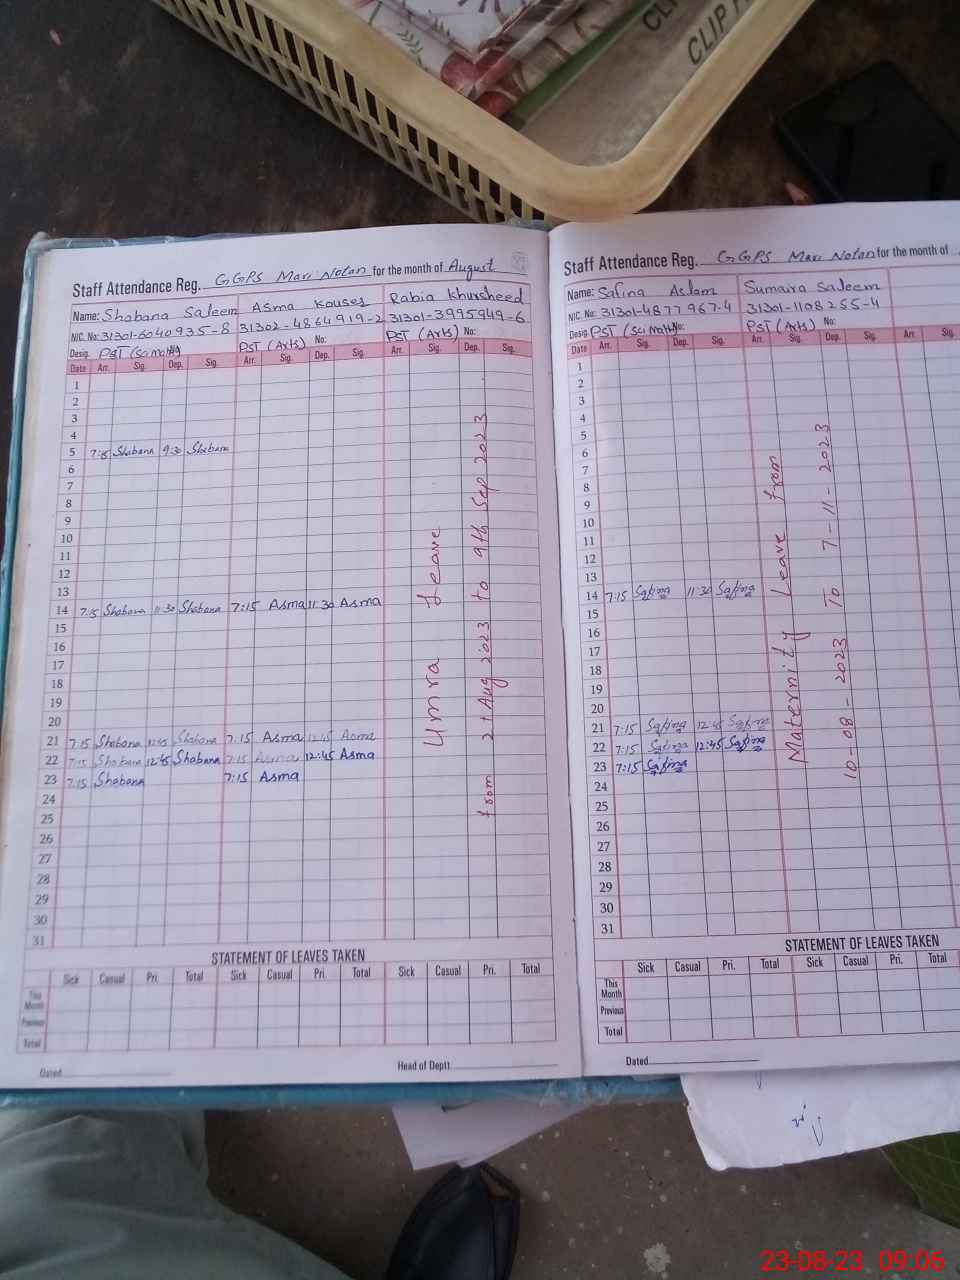 CLIP
CLIP
Staff Attendance Reg. GGPS Mari Notan for the month of August
Name: Shabana Saleem Asma Kouser Rabia Khursheed
NIC. No: 31301-6040935-8 31302-4864919-2 31301-3995949-6
Desig. PST (Sci Math) No: PST (Arts) No: PST (Arts) No:
Date Arr. Sig. Dep. Sig. Arr. Sig. Dep. Sig. Arr. Sig. Dep. Sig.
1
2
3
4
5 7:15 Shabana 9:30 Shabana
6
7
8
9
10
11
12
13
14 7:15 Shabana 11:30 Shabana 7:15 Asma 11:30 Asma
15
16
17
18
19
20
21 7:15 Shabana 12:45 Shabana 7:15 Asma 12:45 Asma
22 7:15 Shabana 12:45 Shabana 7:15 Asma 12:45 Asma
23 7:15 Shabana 7:15 Asma
24
25
26
27
28
29
30
31
Umra Leave
from 21 Aug 2023 to 9th Sep 2023
STATEMENT OF LEAVES TAKEN
Sick Casual Pri. Total Sick Casual Pri. Total Sick Casual Pri. Total
This Month
Previous
Total
Dated
Head of Deptt
Staff Attendance Reg. GGPS Mari Notan for the month of
Name: Safina Aslam Sumaira Saleem
NIC. No: 31301-4877967-4 31301-1108255-4
Desig. PST (Sci Math) No: PST (Arts) No:
Date Arr. Sig. Dep. Sig. Arr. Sig. Dep. Sig. Arr. Sig.
1
2
3
4
5
6
7
8
9
10
11
12
13
14 7:15 Safina 11:30 Safina
15
16
17
18
19
20
21 7:15 Safina 12:45 Safina
22 7:15 Safina 12:45 Safina
23 7:15 Safina
24
25
26
27
28
29
30
31
Maternity Leave from
10-08-2023 To 7-11-2023
STATEMENT OF LEAVES TAKEN
Sick Casual Pri. Total Sick Casual Pri. Total
This Month
Previous
Total
Dated
23-08-23 09:06